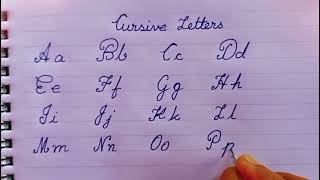 Cursive Letters
Aa Bb Cc Dd
Ee Ff Gg Hh
Ii Jj Kk Ll
Mm Nn Oo Pp